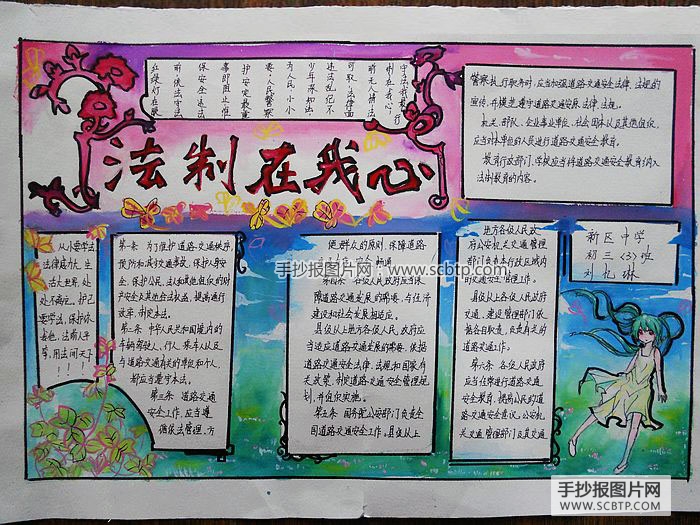 守法光我最行
前无人情法
可取,法律面
违法乱犯不
少年深知法
为人民,小小
要,人民警察
护安定最重
毒即阻止维
保安全远法
前,依法守法
红绿灯在眼
警察执行职务时,应当加强道路交通安全法律、法规的
宣传,并模范遵守道路交通安全法律、法规。
机关、部队、企业事业单位、社会团体以及其他组织,
应当对本单位的人员进行道路交通安全教育。
教育行政部门、学校应当将道路交通安全教育纳入
法制教育的内容。
法制在我心
从小要学法
法律底力大,生
古大世界,处
处不离它。护己
要学法,保护你
去他,法前人平
等,用法问天下
!!!
第一条 为了维护道路交通秩序,
预防和减少交通事故,保护人身安
全,保护公民、法人和其他组织的财
产安全及其他合法权益,提高通行
效率,制定本法。
第二条 中华人民共和国境内的
车辆驾驶人、行人、乘车人以及
与道路交通有关的单位和个人,
都应当遵守本法。
第三条 道路交通
安全工作,应当遵
循依法管理、方
便群众的原则,保障道路
第四条 各级人民政府应当保
障道路交通发展的需要,与经济
建设和社会发展相适应。
县级以上地方各级人民政府,应
当适应道路交通发展的需要,依据
道路交通安全法律、法规和国家有
关政策,制定道路交通安全管理规
划,并组织实施。
第五条 国务院公安部门负责全
国道路交通安全工作。县级以上
地方各级人民政
府公安机关交通管理
部门负责本行政区域内
的道路交通安全管理工作。
县级以上各级人民政府
交通、建设管理部门依据
各自职责,负责有关的
道路交通工作。
第六条 各级人民政府
应当经常进行道路交通
安全教育,提高公民的道
路交通安全意识。公安机
关交通管理部门及其交通
新区中学
初三(3)班
手抄报图片网 - www.scbtp.com
手抄报图片网
WWW.SCBTP.COM